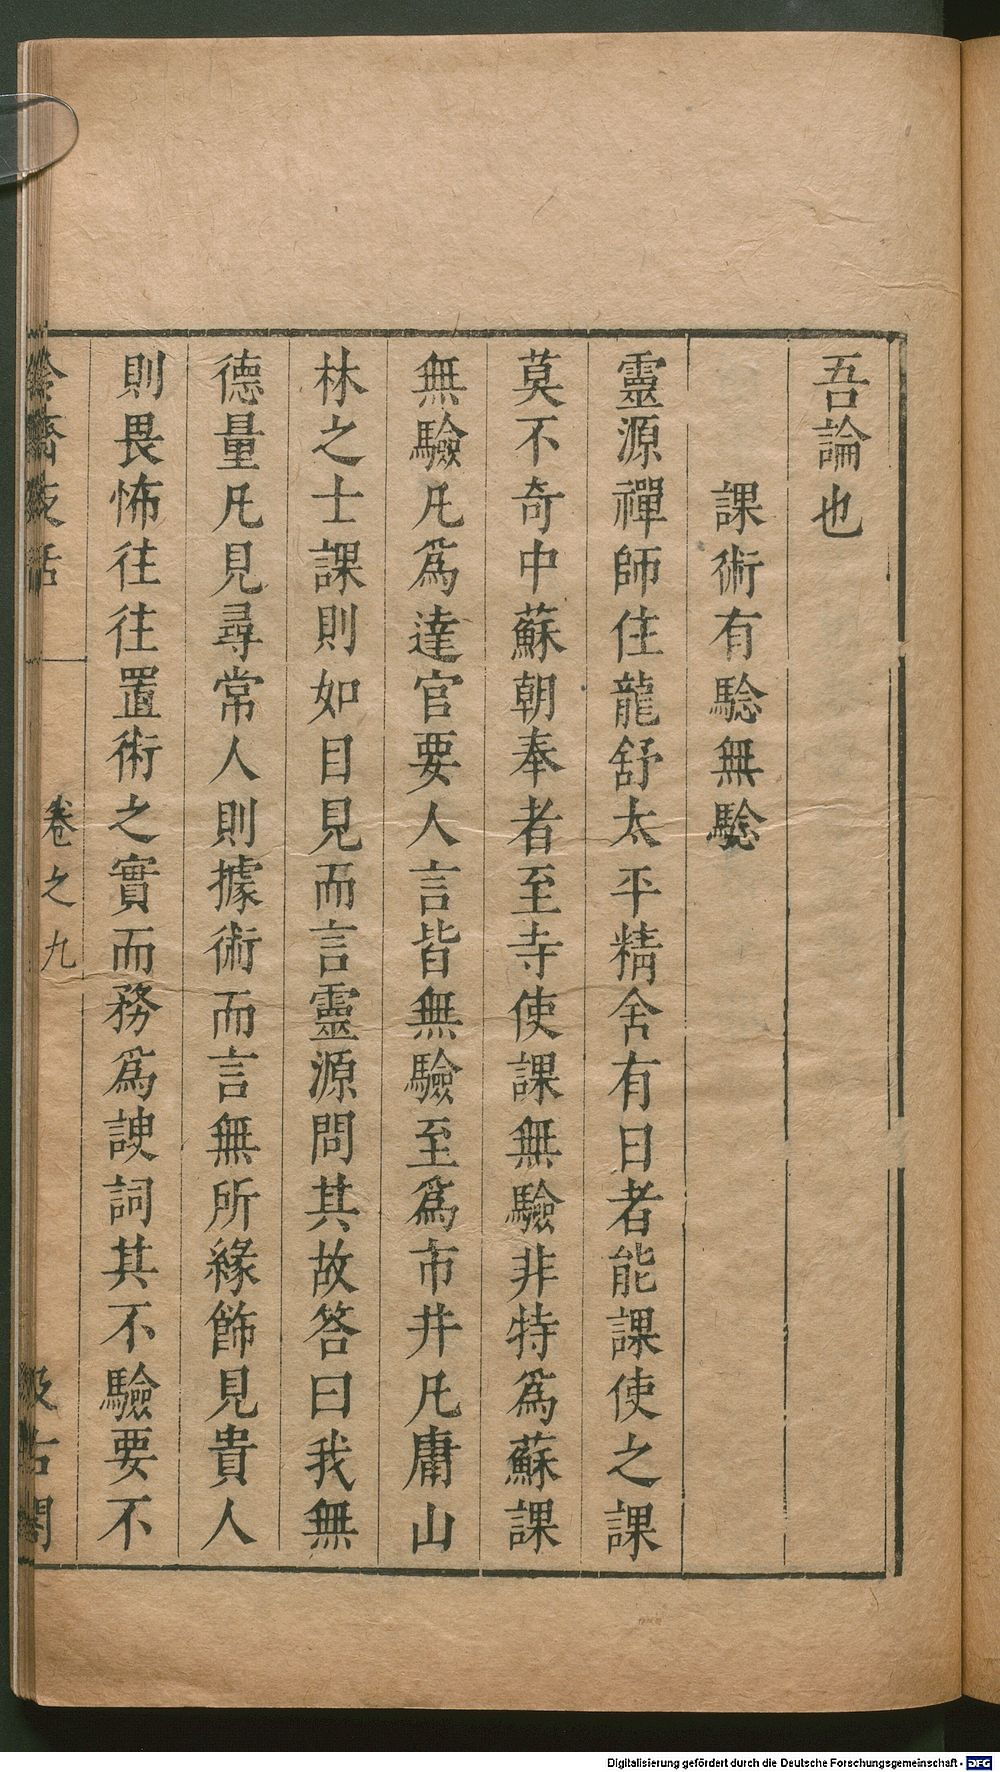 吾論也
課術有騐無騐
靈源禪師住龍舒太平精舍有日者能課使之課
莫不奇中蘇朝奉者至寺使課無驗非特爲蘇課
無驗凡爲達官要人言皆無驗至爲市井凡庸山
林之士課則如目見而言靈源問其故答曰我無
德量凡見尋常人則據術而言無所緣飾見貴人
則畏怖往往置術之實而務爲諛詞其不驗要不
冷齋夜話
卷之九
汲古閣
Digitalisierung gefördert durch die Deutsche Forschungsgemeinschaft - DFG